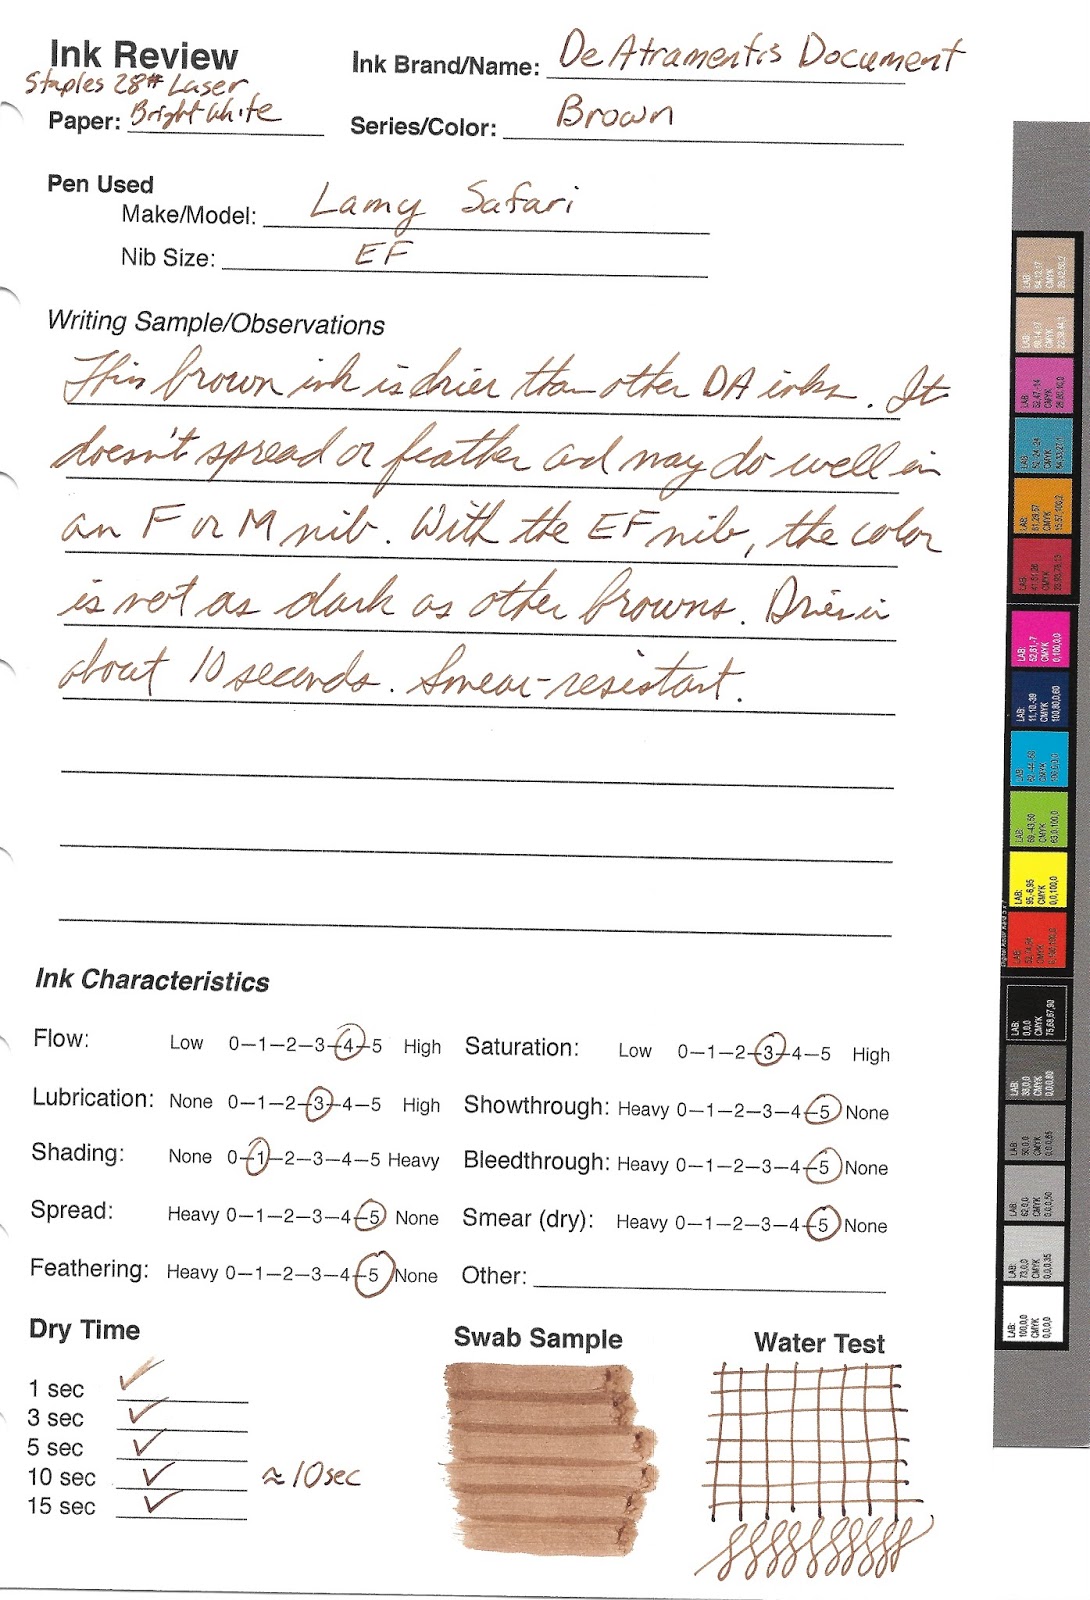 Ink Review
Ink Brand/Name: De Atramentis Document
Staples 28# Laser
Paper: Bright White
Series/Color: Brown
Pen Used
Make/Model: Lamy Safari
Nib Size: EF
Writing Sample/Observations
This brown ink is drier than other DA inks. It
doesn't spread or feather and may do well in
an F or M nib. With the EF nib, the color
is not as dark as other browns. Dries in
about 10 seconds. Smear-resistant.
Ink Characteristics
Flow: Low 0–1–2–3–4–5 High
Saturation: Low 0–1–2–3–4–5 High
Lubrication: None 0–1–2–3–4–5 High
Showthrough: Heavy 0–1–2–3–4–5 None
Shading: None 0–1–2–3–4–5 Heavy
Bleedthrough: Heavy 0–1–2–3–4–5 None
Spread: Heavy 0–1–2–3–4–5 None
Smear (dry): Heavy 0–1–2–3–4–5 None
Feathering: Heavy 0–1–2–3–4–5 None
Other:
Dry Time
Swab Sample
Water Test
1 sec
3 sec
5 sec
10 sec ≈10sec
15 sec